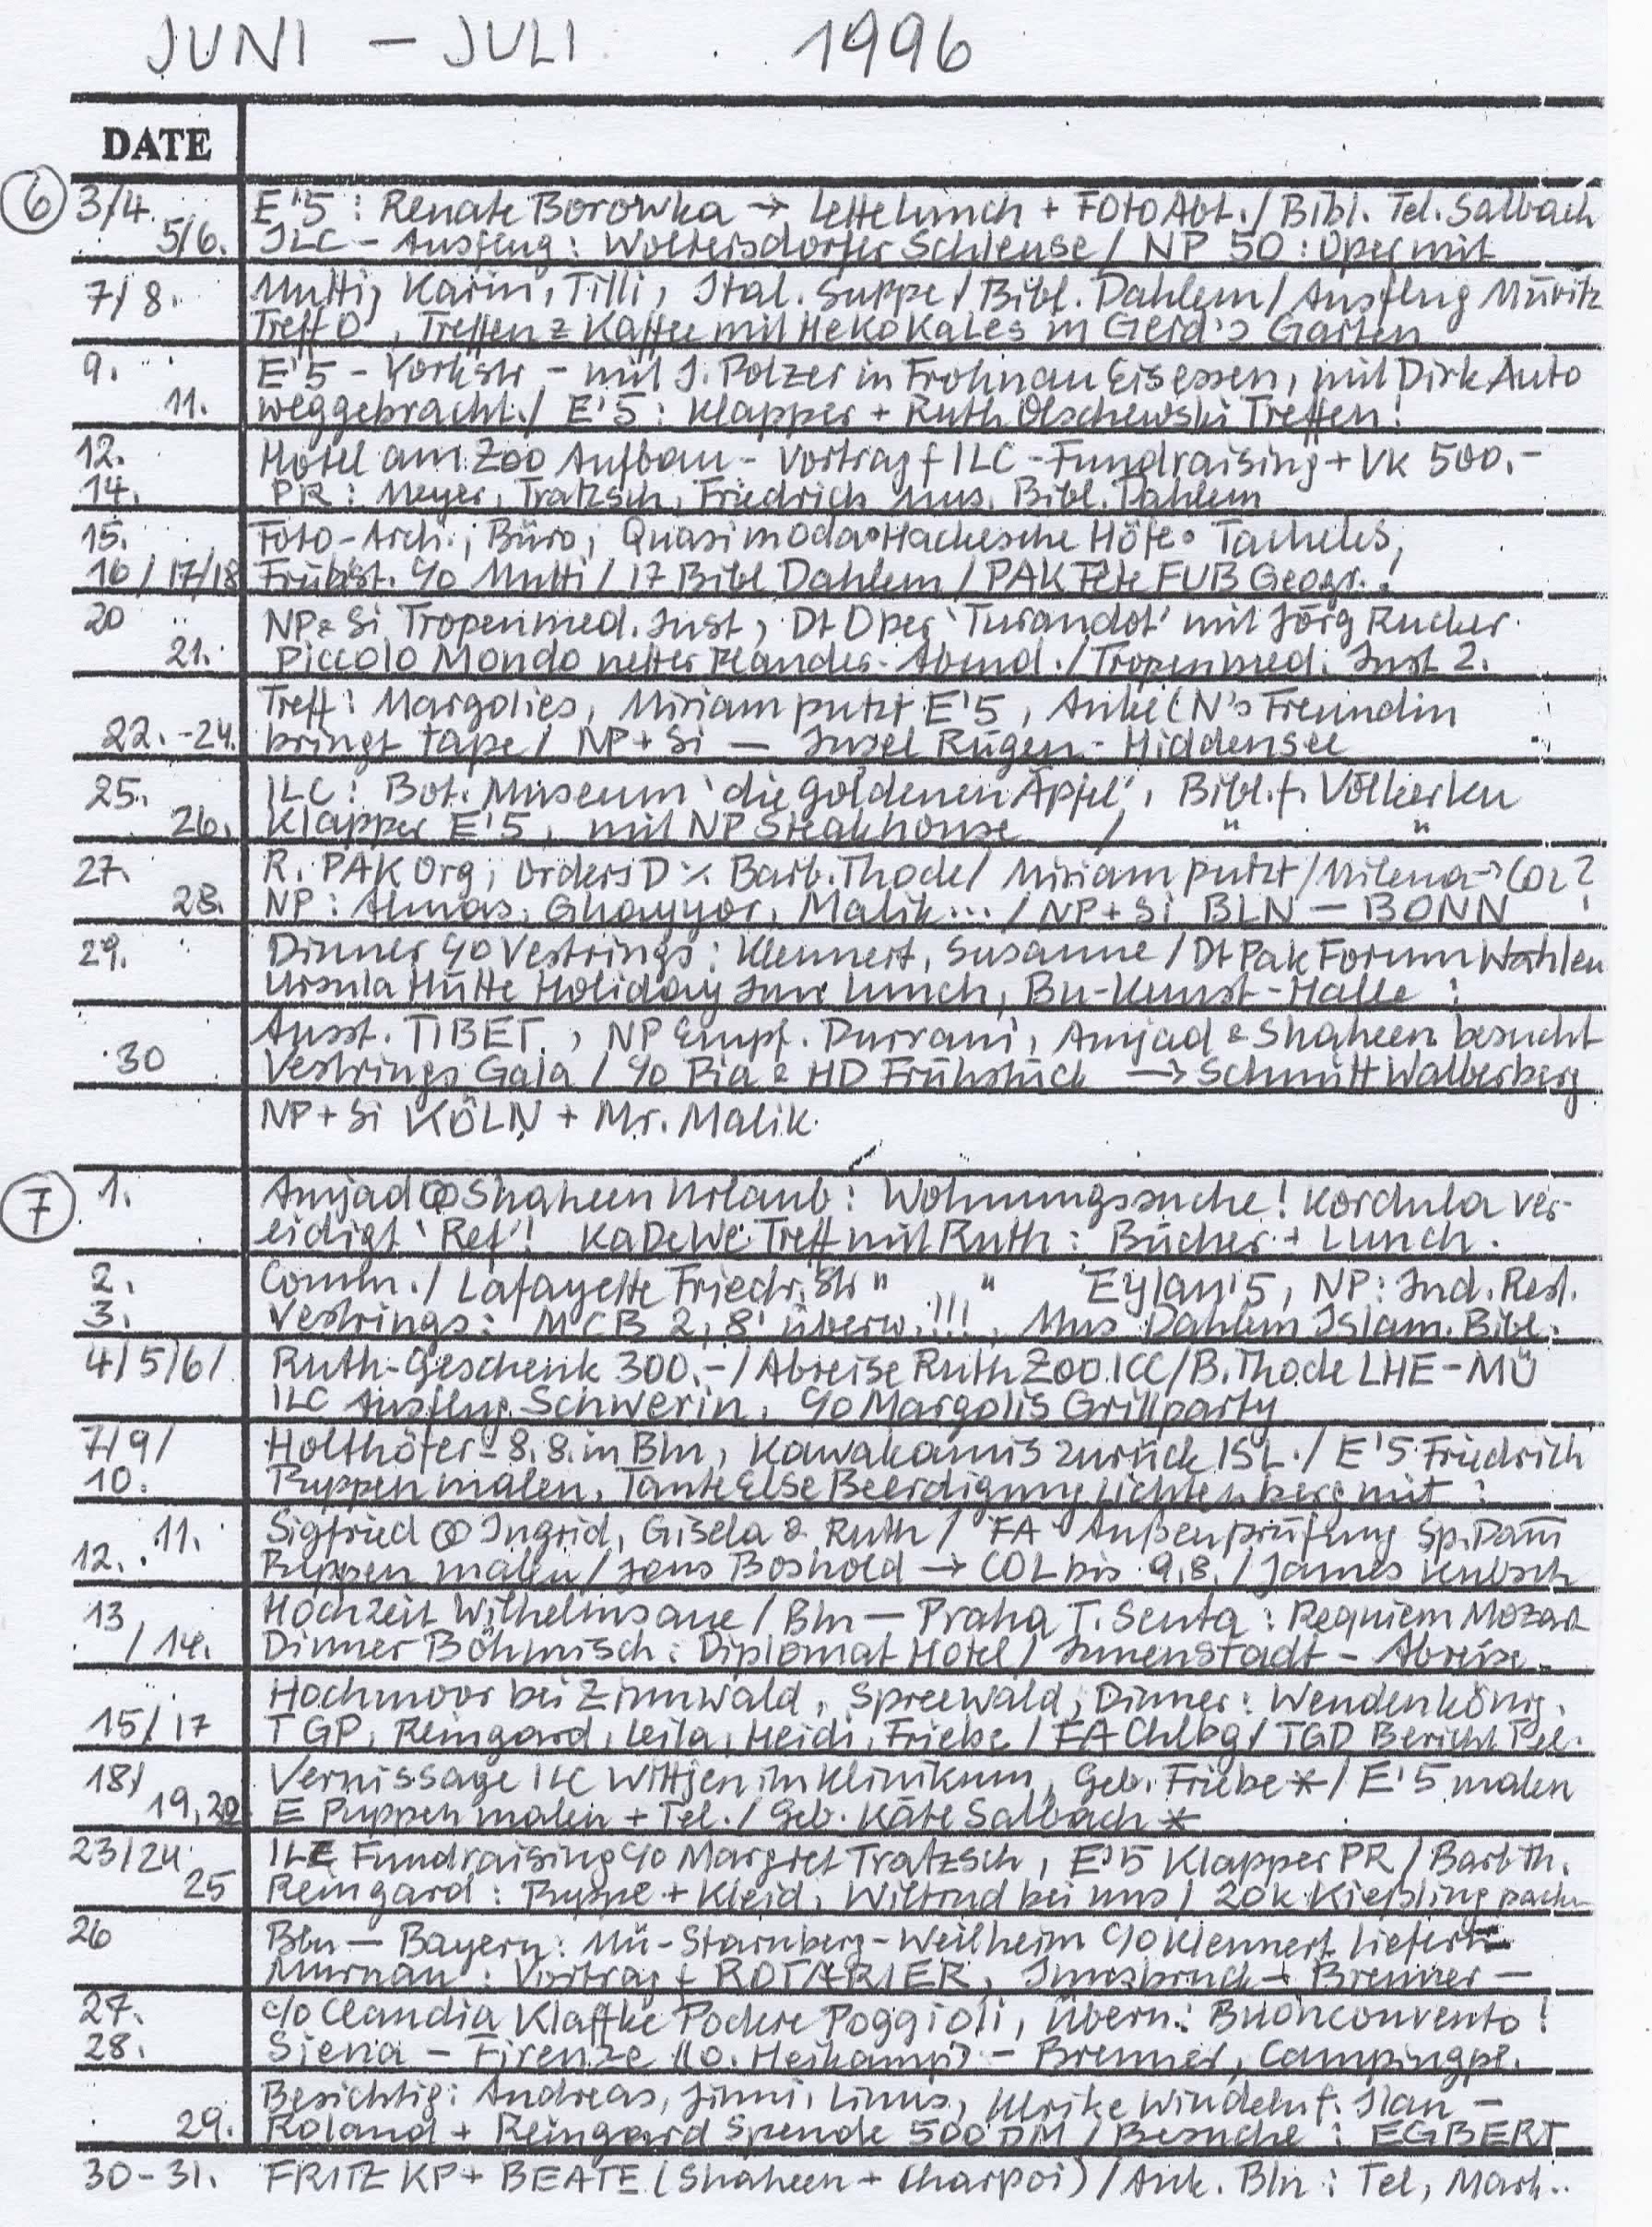 JUNI - JULI 1996
DATE
6 3/4. E'5: Renate Borowka → Lettelunch + FOTO Abt./ Bibl. Tel. Salbach
5/6. ILC - Ausflug: Woltersdorfer Schleuse / NP 50: Oper mit
7/8. Mutti, Karin, Tilli, Ital. Suppe / Bibl. Dahlem / Ausflug Müritz
Treff O, Treffen z Kaffee mit Hekokales in Gerd's Garten
9. E'5 - Yorkstr - mit J. Polzer in Frohnau Eisessen, mit Dirk Auto
11. weggebracht./ E'5: Klapper + Ruth Olschewski Treffen!
12. Hotel am Zoo Aufbau - Vortrag f ILC - Fundraising + VK 500.-
14. PR: Meyer, Tratzsch, Friedrich Mus. Bibl. Dahlem
15. Foto-Arch.; Büro; Quasimodo • Hackesche Höfe • Tacheles,
16/17/18 Frühst. c/o Mutti / 17 Bibl Dahlem / PAK Fete FUB Geogr.!
20 NP & Si Tropenmed. Inst, Dt Oper 'Turandot' mit Jörg Rucker
21. Piccolo Mondo netter Abend./Tropenmed. Inst 2.
Treff: Margolies, Miriam putzt E'5, Anke (N's Freundin
22.-24. bringt tape / NP + Si - Insel Rügen - Hiddensee
25. ILC: Bot. Museum 'die goldenen Äpfel', Bibl. f. Völkerku
26. Klapper E'5, mit NP Steakhouse / " "
27. R. PAK Org; Orders D ./. Barb. Thode / Miriam putzt / Milena → COL?
28. NP: Almas, Ghayyor, Malik... / NP + Si BLN - BONN !
29. Dinner c/o Vestrings: Klennert, Susanne / Dt Pak Forum Wahlen
Ursula Hütte Holiday Inn Lunch, Bu-Kunst-Halle:
Ausst. TIBET, NP Empf. Durrani, Amjad & Shaheen besucht
30 Vestrings Gala / c/o Pia & HD Frühstück → Schmitt Walberberg
NP + Si KÖLN + Mr. Malik.
7 1. Amjad ⚭ Shaheen Urlaub: Wohnungssuche! Kordula ver-
eidigt 'Ref'! KaDeWe Treff mit Ruth: Bücher + Lunch.
2. Comm./ Lafayette Friedr.Str " " Eylau'5, NP: Ind. Rest.
3. Vestrings: MCB 2,8' überw.!!!, Mus Dahlem Islam. Bibl.
4/5/6/ Ruth-Geschenk 300.- / Abreise Ruth Zoo ICC / B. Thode LHE - MÜ
ILC Ausflug Schwerin, c/o Margolis Grillparty
7/9/ Holthöfer - 8.8. in Bln, Kawakamis zurück ISL./ E'5 Friedrich
10. Puppen malen, Tante Else Beerdigung Lichtenberg mit:
11. Sigfried ⚭ Ingrid, Gisela & Ruth / FA Außenprüfung Sp.Dam
12. Puppen malen / Jens Boshold → COL bis 9.8. / James
13 Hochzeit Wilhelmsaue / Bln - Praha T. Senta: Requiem Mozart
/ 14. Dinner Böhmisch: Diplomat Hotel / Innenstadt - Abreise -
Hochmoor bei Zinnwald, Spreewald, Dinner: Wendenkönig.
15/17 TGP, Reingard, Leila, Heidi, Friebe / FA Chlbg / TGD Bericht Tel.
18/ Vernissage ILC Wittjen im Klinikum, Geb. Friebe * / E'5 malen
19,20 E Puppen malen + Tel. / Geb. Käte Salbach *
23/24 ILC Fundraising c/o Margret Tratzsch, E'5 Klapper PR / Barb Th.
25 Reingard: Puppe + Kleid, Wiltrud bei uns / 20k Kießling
26 Bln - Bayern: Mü - Starnberg - Weilheim c/o Klennert liefern
Murnau: Vortrag f ROTARIER, Innsbruck + Brenner -
27. c/o Claudia Klaffke Podere Poggioli, Übern.: Buonconvento!
28. Siena - Firenze Heikamp - Brenner, Campingpl.
Besichtig: Andreas, Jinni, Linus, Ulrike f. Ilan -
29. Roland + Reingard Spende 500 DM / Besuche: EGBERT
30-31. FRITZ KP + BEATE (Shaheen + Charpoi) / Ank. Bln: Tel, Mark..